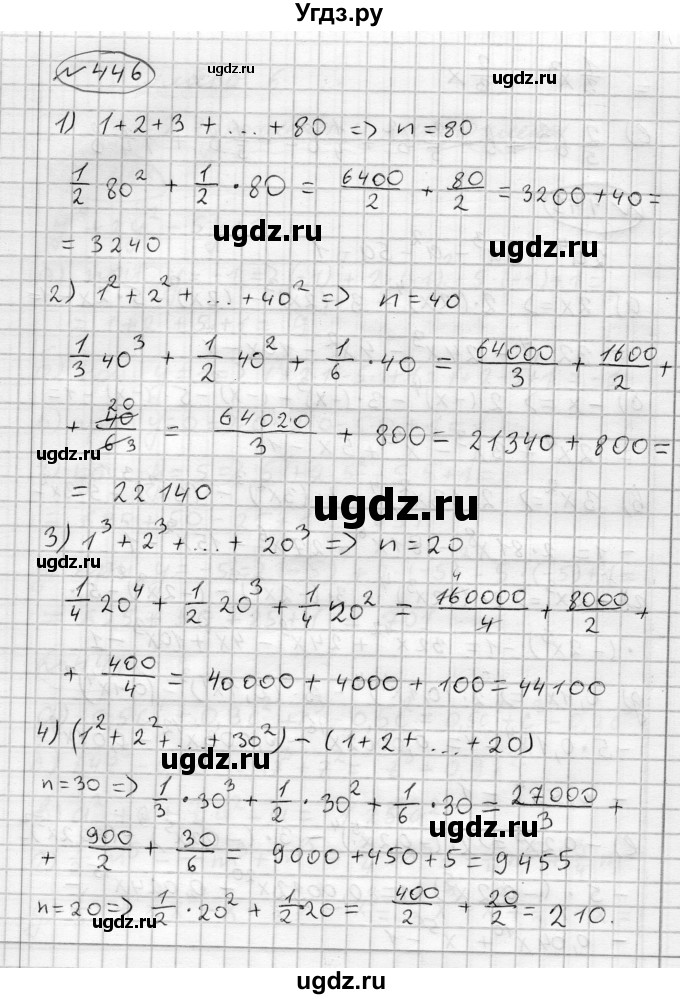 Угдз.ру
№ 446
ugdz.ru ugdz.ru
1) 1+2+3 + ... + 80 => n = 80
1/2 80² + 1/2 · 80 = 6400/2 + 80/2 = 3200 + 40 =
= 3240
ugdz.ru ugdz.ru
2) 1² + 2² + ... + 40² => n = 40
1/3 40³ + 1/2 40² + 1/6 · 40 = 64000/3 + 1600/2 +
+ 40/6 20 3 = 64020/3 + 800 = 21340 + 800 =
ugdz.ru ugdz.ru
= 22 140
ugdz.ru
3) 1³ + 2³ + ... + 20³ => n = 20
ugdz.ru
1/4 20⁴ + 1/2 20³ + 1/4 20² = 160000/4 4 + 8000/2 +
ugdz.ru
+ 400/4 = 40000 + 4000 + 100 = 44100
4) (1² + 2² + ... + 30²) - (1 + 2 + ... + 20)
ugdz.ru
n = 30 => 1/3 · 30³ + 1/2 · 30² + 1/6 · 30 = 27000/3 +
ugdz.ru
+ 900/2 + 30/6 = 9000 + 450 + 5 = 9455
n = 20 => 1/2 · 20² + 1/2 · 20 = 400/2 + 20/2 = 210.
ugdz.ru ugdz.ru
ugdz.ru